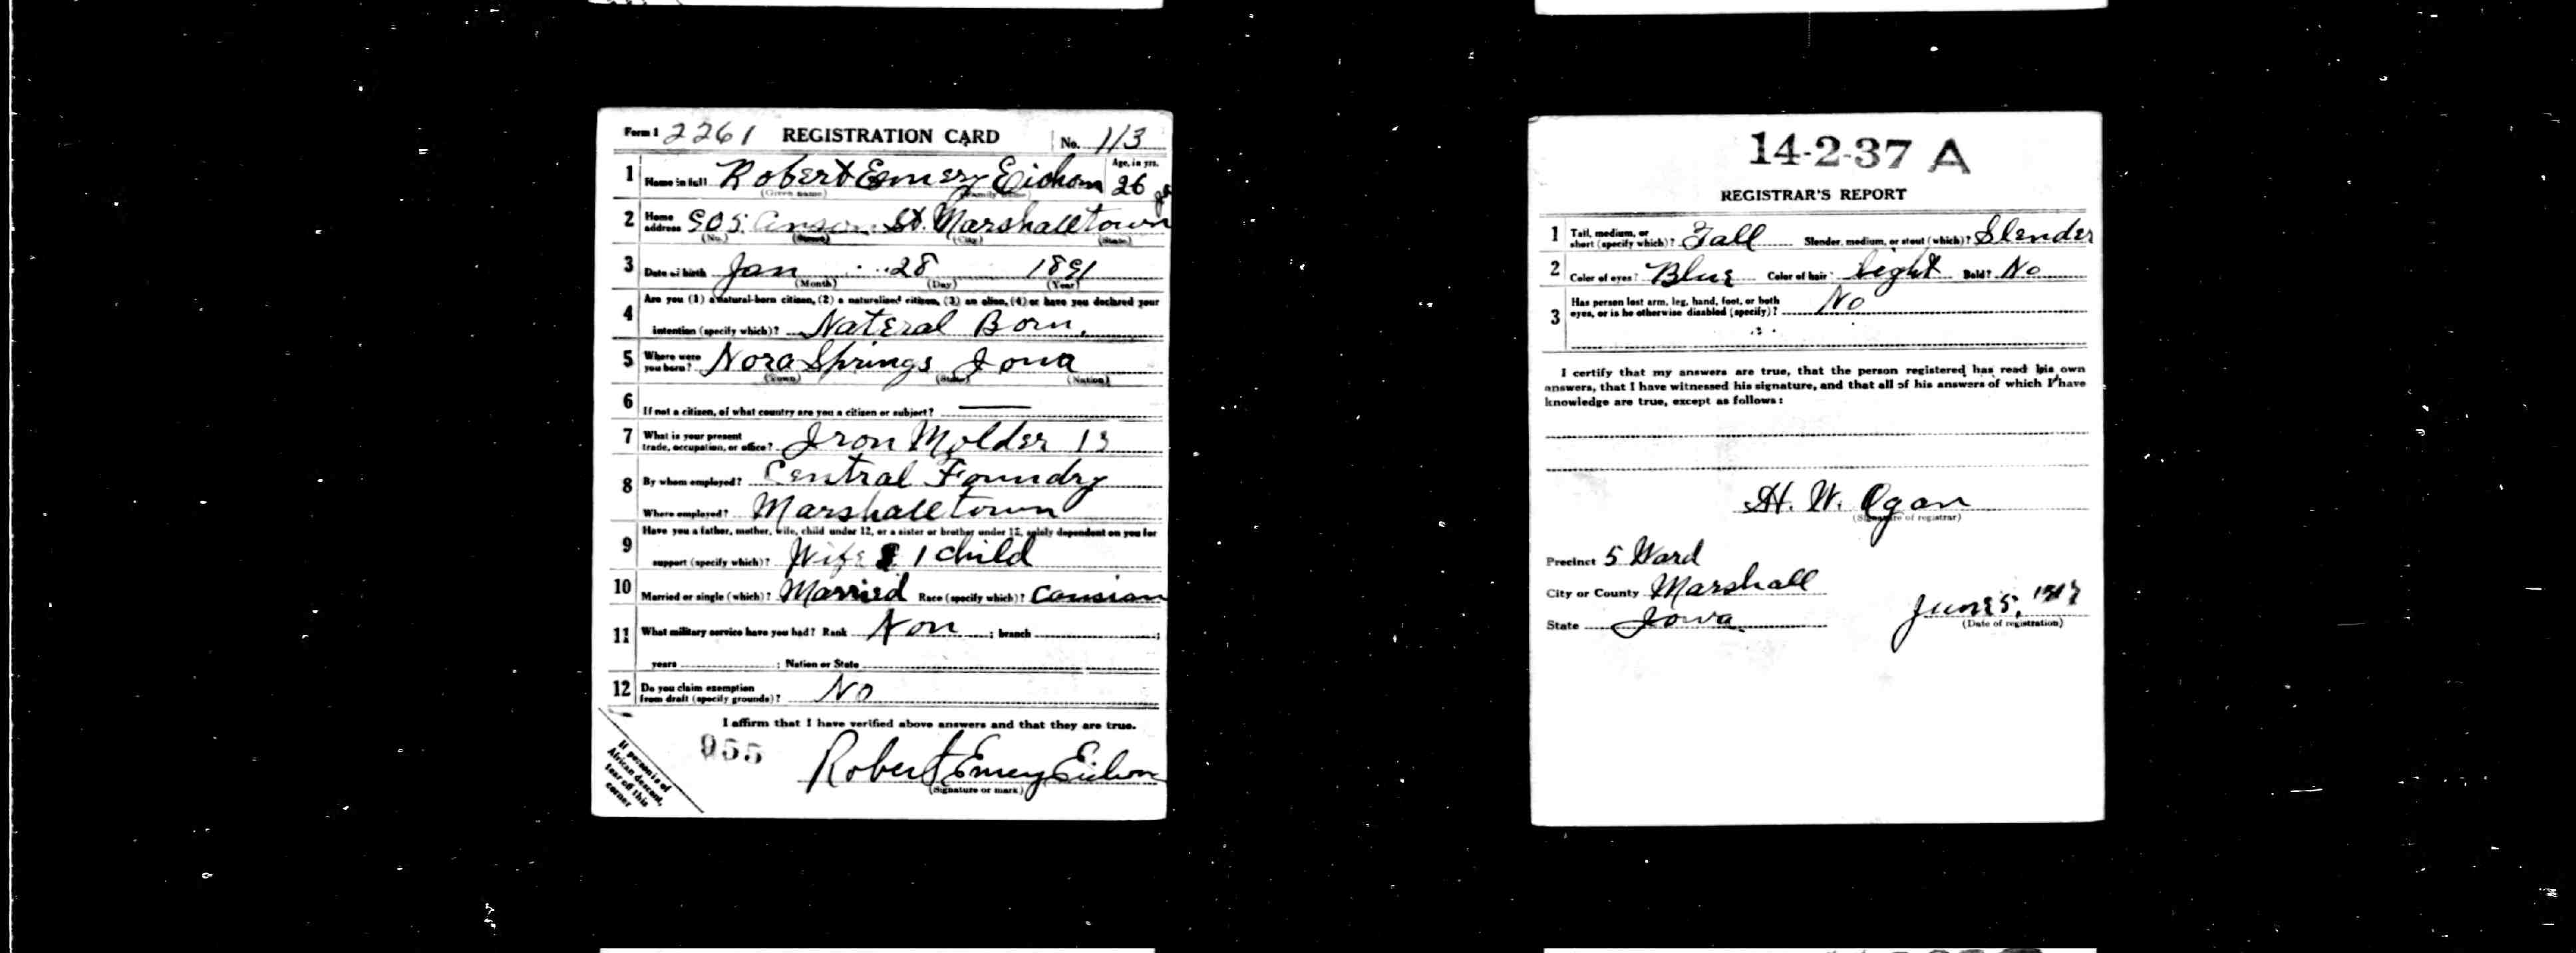 Form 1 2261 REGISTRATION CARD No. 113
1 Name in full Robert Emery Eichorn Age, in yrs. 26
(Given name) (Family name)
2 Home address 905 Anson St. Marshalltown
(No.) (Street) (City) (State)
3 Date of birth Jan 28 1891
(Month) (Day) (Year)
4 Are you (1) a natural-born citizen, (2) a naturalized citizen, (3) an alien, (4) or have you declared your
intention (specify which)? Nateral Born.
5 Where were you born? Nora Springs Iowa
(Town) (State) (Nation)
6 If not a citizen, of what country are you a citizen or subject? —
7 What is your present trade, occupation, or office? Iron Molder 13
8 By whom employed? Central Foundry
Where employed? Marshalltown
9 Have you a father, mother, wife, child under 12, or a sister or brother under 12, solely dependent on you for
support (specify which)? Wife & 1 child
10 Married or single (which)? Married Race (specify which)? Causian
11 What military service have you had? Rank Non ; branch ;
years ; Nation or State
12 Do you claim exemption from draft (specify grounds)? No
I affirm that I have verified above answers and that they are true.
955
Robert Emery Eichorn
(Signature or mark)
If person is of
African descent,
tear off this
corner
14-2-37 A
REGISTRAR'S REPORT
1 Tall, medium, or short (specify which)? Tall Slender, medium, or stout (which)? Slender
2 Color of eyes? Blue Color of hair? Light Bald? No
3 Has person lost arm, leg, hand, foot, or both eyes, or is he otherwise disabled (specify)? No
I certify that my answers are true, that the person registered has read his own
answers, that I have witnessed his signature, and that all of his answers of which I have
knowledge are true, except as follows:
H. W. Ogan
(Signature of registrar)
Precinct 5 Ward
City or County Marshall
State Iowa
June 5, 1917
(Date of registration)